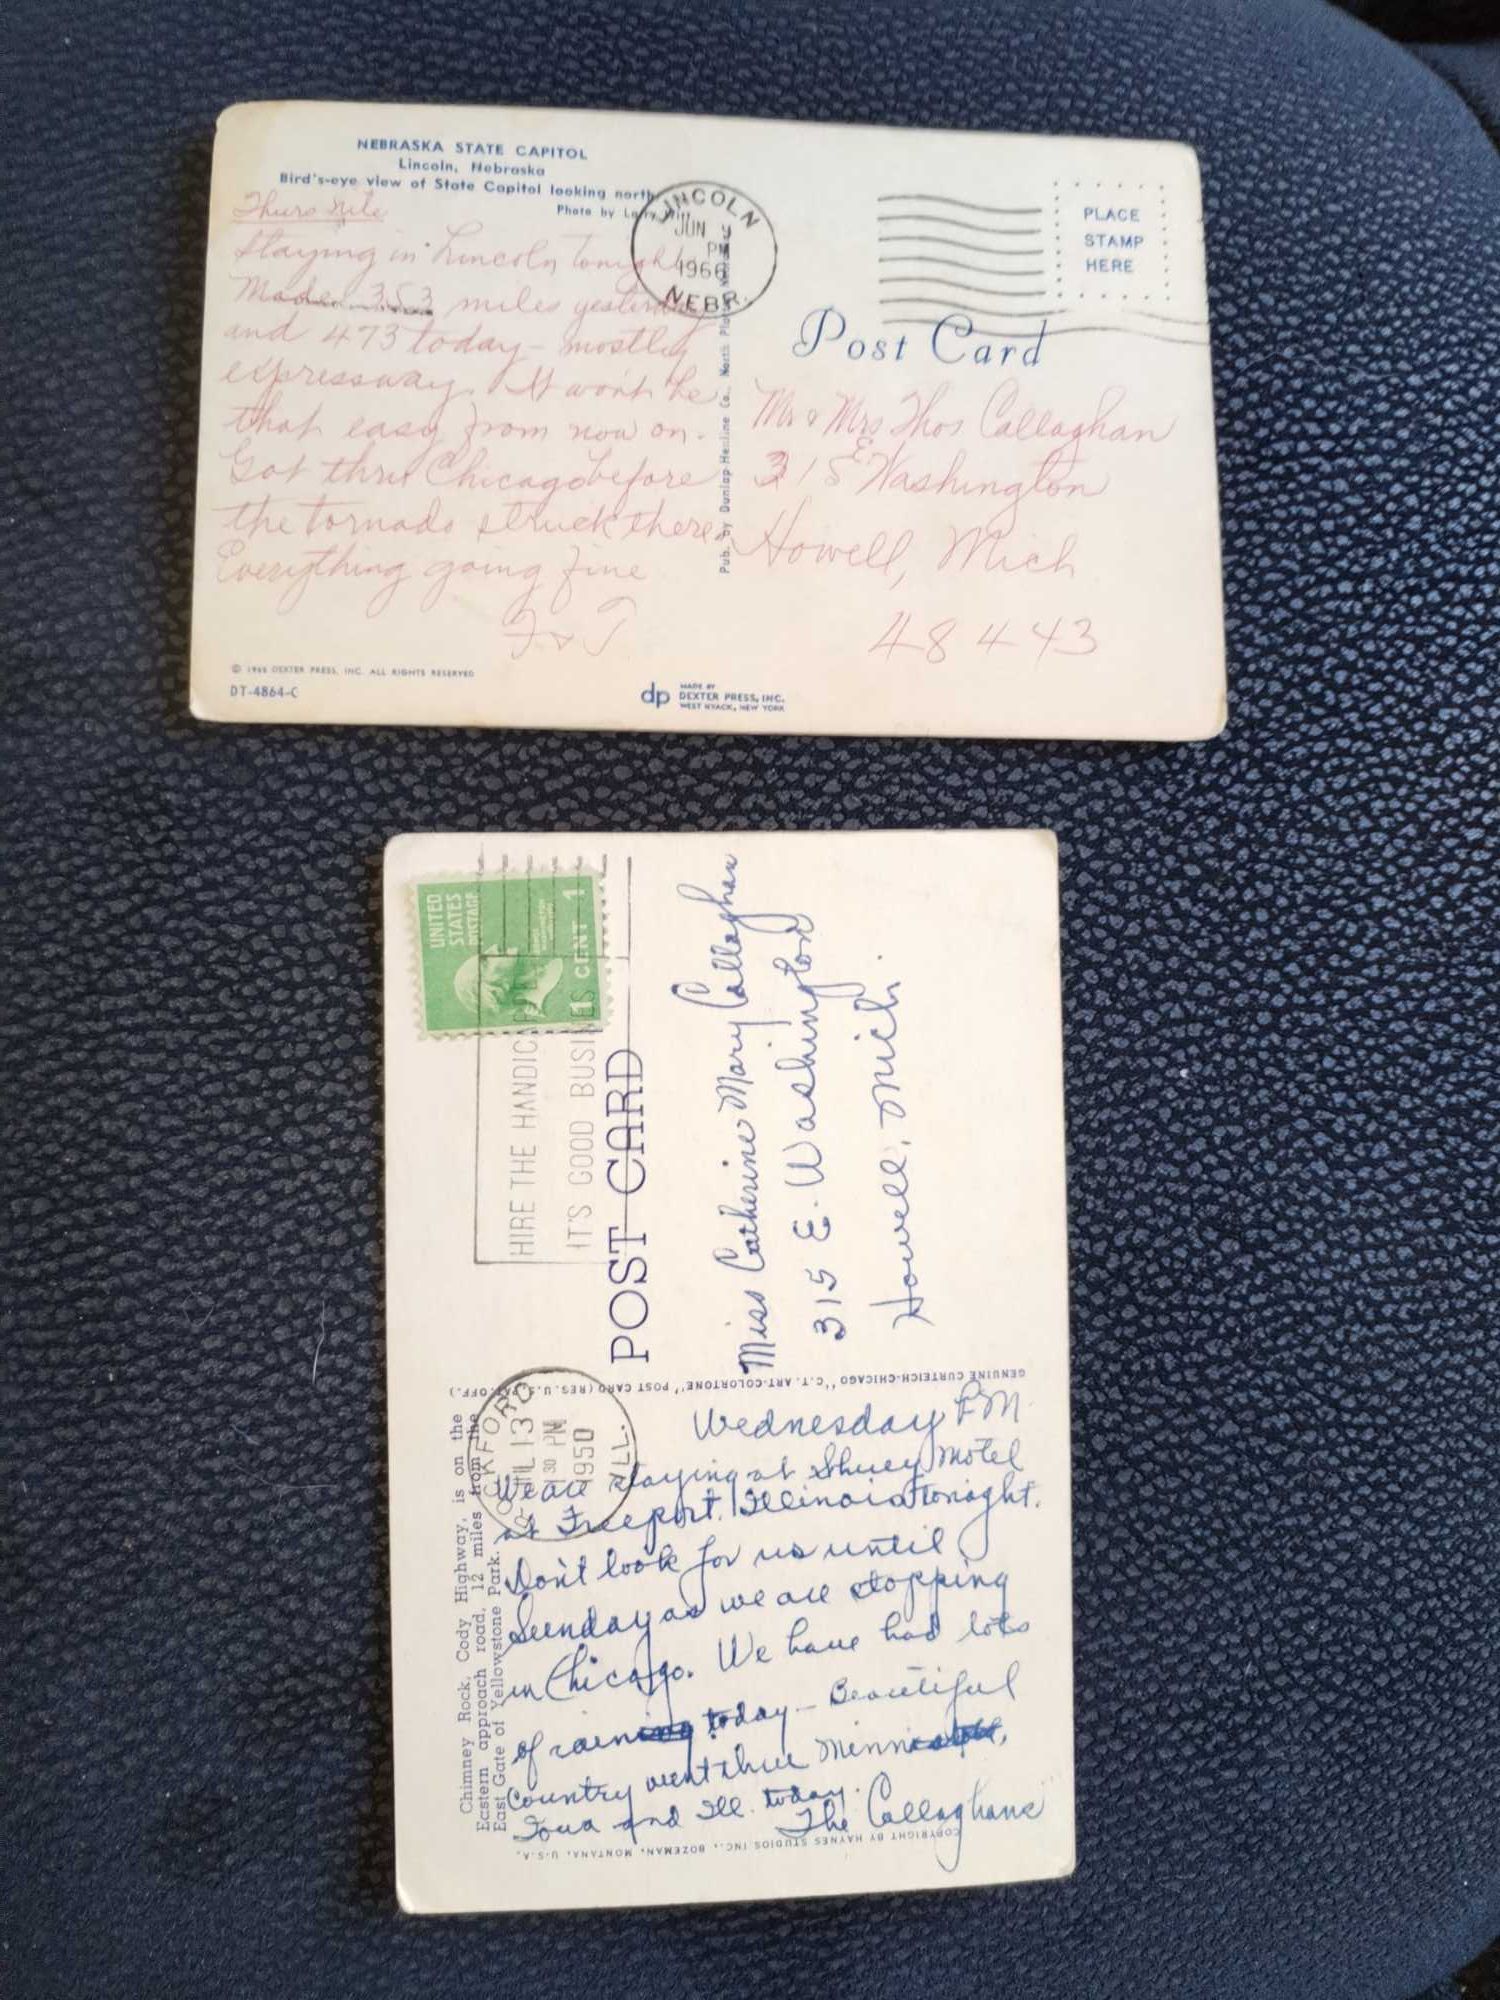 NEBRASKA STATE CAPITOL
Lincoln, Nebraska
Bird's-eye view of State Capitol looking north
Photo by
Thurs Nite
Staying in Lincoln tonight
Made 353 miles yesterday
and 473 today - mostly
expressway. It won't be
that easy from now on.
Got thru Chicago before
the tornado struck there
Everything going fine
F & T
© 1965 DEXTER PRESS, INC. ALL RIGHTS RESERVED
DT-4864-C
dp
MADE BY
DEXTER PRESS, INC.
WEST NYACK, NEW YORK
Pub. by Dunlap-Henline Co., North
LINCOLN
JUN
PM
1966
NEBR.
PLACE
STAMP
HERE
Post Card
Mr & Mrs Thos Callaghan
315 E Washington
Howell, Mich
48443
UNITED
STATES
POSTAGE
1 CENT 1
HIRE THE HANDIC
IT'S GOOD BUSINES
POST CARD
Miss Catherine Mary Callaghan
315 E. Washington
Howell, Mich.
GENUINE CURTEICH-CHICAGO "C.T. ART-COLORTONE" POST CARD (RES. U.S. PAT. OFF.)
ROCKFORD
JUL 13
30 PM
1950
ILL.
Chimney Rock, Cody Highway, is on the
Eastern approach road, 12 miles from the
East Gate of Yellowstone Park.
Wednesday P.M
We are staying at Motel
at Freeport, Illinois tonight.
Don't look for us until
Sunday as we are stopping
in Chicago. We have had lots
of rain today - Beautiful
Country went thru Minn,
Iowa and Ill. today.
The Callaghans
COPYRIGHT BY HAYNES STUDIOS INC., BOZEMAN, MONTANA, U.S.A.